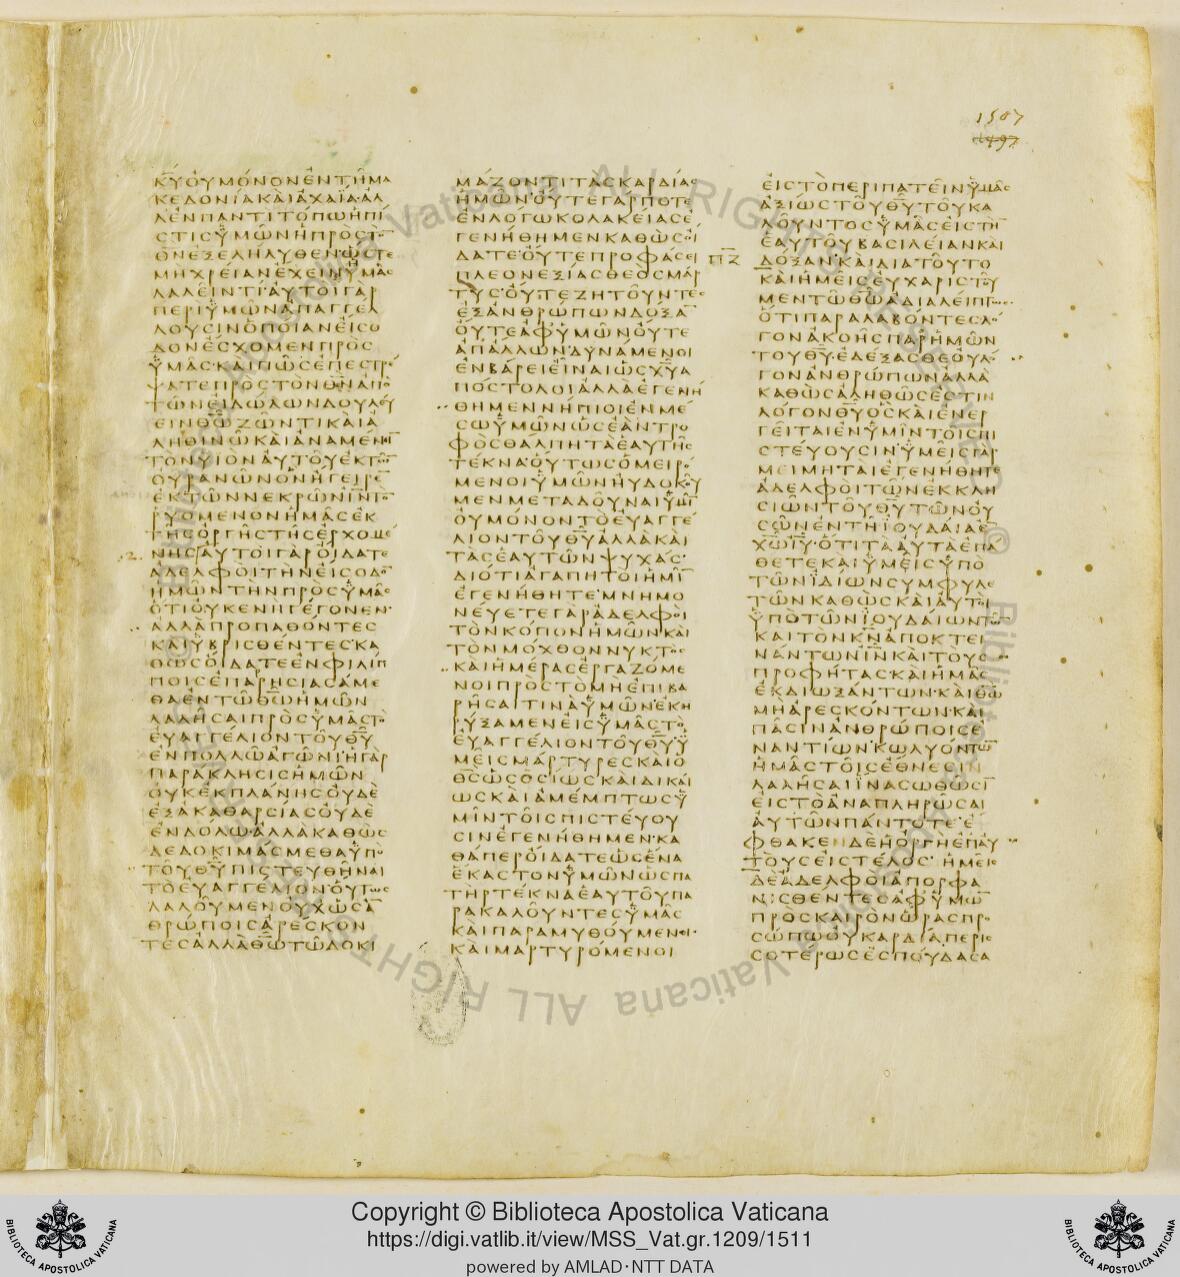 1507
1497
ΚΥΟΥΜΟΝΟΝΕΝΤΗΜΑ
ΚΕΔΟΝΙΑΚΑΙΑΧΑΙΑΑΛ
ΛΕΝΠΑΝΤΙΤΟΠΩΗΠΙ
ΣΤΙΣΥΜΩΝΗΠΡΟΣΤΟ
ΟΝΕΞΕΛΗΛΥΘΕΝΩΣΤΕ
ΜΗΧΡΕΙΑΝΕΧΕΙΝΥΜΑΣ
ΛΑΛΕΙΝΤΙΑΥΤΟΙΓΑΡ
ΠΕΡΙΥΜΩΝΑΠΑΓΓΕΛ
ΛΟΥΣΙΝΟΠΟΙΑΝΕΙΣΟ
ΔΟΝΕΣΧΟΜΕΝΠΡΟΣ
ΥΜΑΣΚΑΙΠΩΣΕΠΕΣΤΡΕ
ΨΑΤΕΠΡΟΣΤΟΝΘΝΑΠΟ
ΤΩΝΕΙΔΩΛΩΝΔΟΥΛΕΥ
ΕΙΝΘΩΖΩΝΤΙΚΑΙΑ
ΛΗΘΙΝΩΚΑΙΑΝΑΜΕΝΕΙ
ΤΟΝΥΙΟΝΑΥΤΟΥΕΚΤΩ
ΟΥΡΑΝΩΝΟΝΗΓΕΙΡΕ
ΕΚΤΩΝΝΕΚΡΩΝΙΝΤΟ
ΡΥΟΜΕΝΟΝΗΜΑΣΕΚ
ΤΗΣΟΡΓΗΣΤΗΣΕΡΧΟΜΕ
ΝΗΣΑΥΤΟΙΓΑΡΟΙΔΑΤΕ
ΑΔΕΛΦΟΙΤΗΝΕΙΣΟΔΟ
ΗΜΩΝΤΗΝΠΡΟΣΥΜΑΣ
ΟΤΙΟΥΚΕΝΗΓΕΓΟΝΕΝ
ΑΛΛΑΠΡΟΠΑΘΟΝΤΕΣ
ΚΑΙΥΒΡΙΣΘΕΝΤΕΣΚΑ
ΘΩΣΟΙΔΑΤΕΕΝΦΙΛΙΠ
ΠΟΙΣΕΠΑΡΗΣΙΑΣΑΜΕ
ΘΑΕΝΤΩΘΩΗΜΩΝ
ΛΑΛΗΣΑΙΠΡΟΣΥΜΑΣΤΟ
ΕΥΑΓΓΕΛΙΟΝΤΟΥΘΥ
ΕΝΠΟΛΛΩΑΓΩΝΙΗΓΑΡ
ΠΑΡΑΚΛΗΣΙΣΗΜΩΝ
ΟΥΚΕΚΠΛΑΝΗΣΟΥΔΕ
ΕΞΑΚΑΘΑΡΣΙΑΣΟΥΔΕ
ΕΝΔΟΛΩΑΛΛΑΚΑΘΩΣ
ΔΕΔΟΚΙΜΑΣΜΕΘΑΥΠΟ
ΤΟΥΘΥΠΙΣΤΕΥΘΗΝΑΙ
ΤΟΕΥΑΓΓΕΛΙΟΝΟΥΤΩΣ
ΛΑΛΟΥΜΕΝΟΥΧΩΣΑ
ΘΡΩΠΟΙΣΑΡΕΣΚΟΝ
ΤΕΣΑΛΛΑΘΩΤΩΔΟΚΙ
ΜΑΖΟΝΤΙΤΑΣΚΑΡΔΙΑΣ
ΗΜΩΝΟΥΤΕΓΑΡΠΟΤΕ
ΕΝΛΟΓΩΚΟΛΑΚΕΙΑΣΕ
ΓΕΝΗΘΗΜΕΝΚΑΘΩΣΟΙ
ΔΑΤΕΟΥΤΕΠΡΟΦΑΣΕΙ
ΠΛΕΟΝΕΞΙΑΣΘΕΟΣΜΑΡ
ΤΥΣΟΥΤΕΖΗΤΟΥΝΤΕΣ
ΕΞΑΝΘΡΩΠΩΝΔΟΞΑ
ΟΥΤΕΑΦΥΜΩΝΟΥΤΕ
ΑΠΑΛΛΩΝΔΥΝΑΜΕΝΟΙ
ΕΝΒΑΡΕΙΕΙΝΑΙΩΣΧΥΑ
ΠΟΣΤΟΛΟΙΑΛΛΑΕΓΕΝΗ
ΘΗΜΕΝΝΗΠΙΟΙΕΝΜΕ
ΣΩΥΜΩΝΩΣΕΑΝΤΡΟ
ΦΟΣΘΑΛΠΗΤΑΕΑΥΤΗΣ
ΤΕΚΝΑΟΥΤΩΣΟΜΕΙΡΟ
ΜΕΝΟΙΥΜΩΝΗΥΔΟΚΟΥ
ΜΕΝΜΕΤΑΔΟΥΝΑΙΥΜΙ
ΟΥΜΟΝΟΝΤΟΕΥΑΓΓΕ
ΛΙΟΝΤΟΥΘΥΑΛΛΑΚΑΙ
ΤΑΣΕΑΥΤΩΝΨΥΧΑΣ
ΔΙΟΤΙΑΓΑΠΗΤΟΙΗΜΙ
ΕΓΕΝΗΘΗΤΕΜΝΗΜΟ
ΝΕΥΕΤΕΓΑΡΑΔΕΛΦΟΙ
ΤΟΝΚΟΠΟΝΗΜΩΝΚΑΙ
ΤΟΝΜΟΧΘΟΝΝΥΚΤΟΣ
ΚΑΙΗΜΕΡΑΣΕΡΓΑΖΟΜΕ
ΝΟΙΠΡΟΣΤΟΜΗΕΠΙΒΑ
ΡΗΣΑΙΤΙΝΑΥΜΩΝΕΚΗ
ΡΥΞΑΜΕΝΕΙΣΥΜΑΣΤΟ
ΕΥΑΓΓΕΛΙΟΝΤΟΥΘΥΥ
ΜΕΙΣΜΑΡΤΥΡΕΣΚΑΙΟ
ΘΣΩΣΟΣΙΩΣΚΑΙΔΙΚΑΙ
ΩΣΚΑΙΑΜΕΜΠΤΩΣΥ
ΜΙΝΤΟΙΣΠΙΣΤΕΥΟΥ
ΣΙΝΕΓΕΝΗΘΗΜΕΝΚΑ
ΘΑΠΕΡΟΙΔΑΤΕΩΣΕΝΑ
ΕΚΑΣΤΟΝΥΜΩΝΩΣΠΑ
ΤΗΡΤΕΚΝΑΕΑΥΤΟΥΠΑ
ΡΑΚΑΛΟΥΝΤΕΣΥΜΑΣ
ΚΑΙΠΑΡΑΜΥΘΟΥΜΕΝΟΙ
ΚΑΙΜΑΡΤΥΡΟΜΕΝΟΙ
ΕΙΣΤΟΠΕΡΙΠΑΤΕΙΝΥΜΑΣ
ΑΞΙΩΣΤΟΥΘΥΤΟΥΚΑ
ΛΟΥΝΤΟΣΥΜΑΣΕΙΣΤΗ
ΕΑΥΤΟΥΒΑΣΙΛΕΙΑΝΚΑΙ
ΔΟΞΑΝΚΑΙΔΙΑΤΟΥΤΟ
ΚΑΙΗΜΕΙΣΕΥΧΑΡΙΣΤΟΥ
ΜΕΝΤΩΘΩΑΔΙΑΛΕΙΠΤΩΣ
ΟΤΙΠΑΡΑΛΑΒΟΝΤΕΣΛΟ
ΓΟΝΑΚΟΗΣΠΑΡΗΜΩΝ
ΤΟΥΘΥΕΔΕΞΑΣΘΕΟΥΛΟ
ΓΟΝΑΝΘΡΩΠΩΝΑΛΛΑ
ΚΑΘΩΣΑΛΗΘΩΣΕΣΤΙΝ
ΛΟΓΟΝΘΥΟΣΚΑΙΕΝΕΡ
ΓΕΙΤΑΙΕΝΥΜΙΝΤΟΙΣΠΙ
ΣΤΕΥΟΥΣΙΝΥΜΕΙΣΓΑΡ
ΜΕΙΜΗΤΑΙΕΓΕΝΗΘΗΤΕ
ΑΔΕΛΦΟΙΤΩΝΕΚΚΛΗ
ΣΙΩΝΤΟΥΘΥΤΩΝΟΥ
ΣΩΝΕΝΤΗΙΟΥΔΑΙΑΕ
ΧΩΙΥΟΤΙΤΑΑΥΤΑΕΠΑ
ΘΕΤΕΚΑΙΥΜΕΙΣΥΠΟ
ΤΩΝΙΔΙΩΝΣΥΜΦΥΛΕ
ΤΩΝΚΑΘΩΣΚΑΙΑΥΤΟΙ
ΥΠΟΤΩΝΙΟΥΔΑΙΩΝΤΩ
ΚΑΙΤΟΝΚΝΑΠΟΚΤΕΙ
ΝΑΝΤΩΝΙΝΚΑΙΤΟΥΣ
ΠΡΟΦΗΤΑΣΚΑΙΗΜΑΣ
ΕΚΔΙΩΞΑΝΤΩΝΚΑΙΘΩ
ΜΗΑΡΕΣΚΟΝΤΩΝΚΑΙ
ΠΑΣΙΝΑΝΘΡΩΠΟΙΣΕ
ΝΑΝΤΙΩΝΚΩΛΥΟΝΤΩ
ΗΜΑΣΤΟΙΣΕΘΝΕΣΙΝ
ΛΑΛΗΣΑΙΙΝΑΣΩΘΩΣΙ
ΕΙΣΤΟΑΝΑΠΛΗΡΩΣΑΙ
ΑΥΤΩΝΠΑΝΤΟΤΕΕ
ΦΘΑΚΕΝΔΕΗΟΡΓΗΕΠΑΥ
ΤΟΥΣΕΙΣΤΕΛΟΣΗΜΕΙΣ
ΔΕΑΔΕΛΦΟΙΑΠΟΡΦΑ
ΝΙΣΘΕΝΤΕΣΑΦΥΜΩ
ΠΡΟΣΚΑΙΡΟΝΩΡΑΣΠΡΟ
ΣΩΠΩΟΥΚΑΡΔΙΑΠΕΡΙΣ
ΣΟΤΕΡΩΣΕΣΠΟΥΔΑΣΑ
Copyright © Biblioteca Apostolica Vaticana
https://digi.vatlib.it/view/MSS_Vat.gr.1209/1511
powered by AMLAD·NTT DATA
BIBLIOTECA APOSTOLICA VATICANA
BIBLIOTECA APOSTOLICA VATICANA